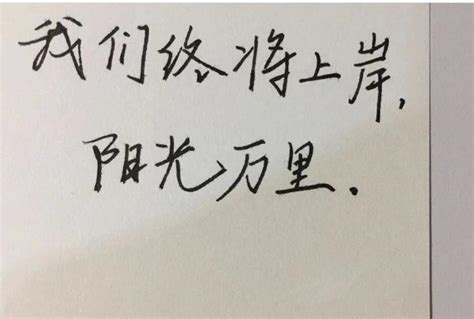 我们终将上岸,
阳光万里.